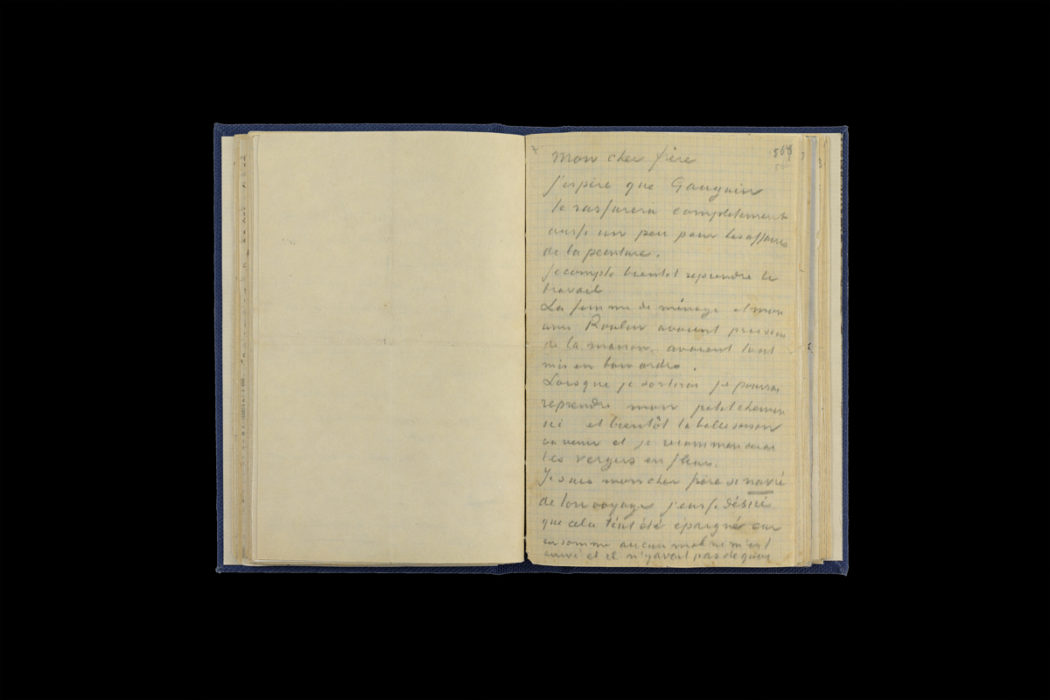 568
mon cher frère
j'espère que Gauguin
te rassurera completement
aussi un peu pour les affaires
de la peinture.
Je compte bientot reprendre le
travail
La femme de ménage et mon
ami Roulin avaient pris soin
de la maison, avaient tout
mis en bon ordre.
Lorsque je sortirai je pourrai
reprendre mon petit chemin
ici et bientôt la belle saison
va venir et je recommencerai
les vergers en fleurs.
Je suis mon cher frère si navré
de ton voyage j'eusse désiré
que cela t'eut été épargné car
en somme aucun mal ne m'est
arrivé et il n'y avait pas de quoi